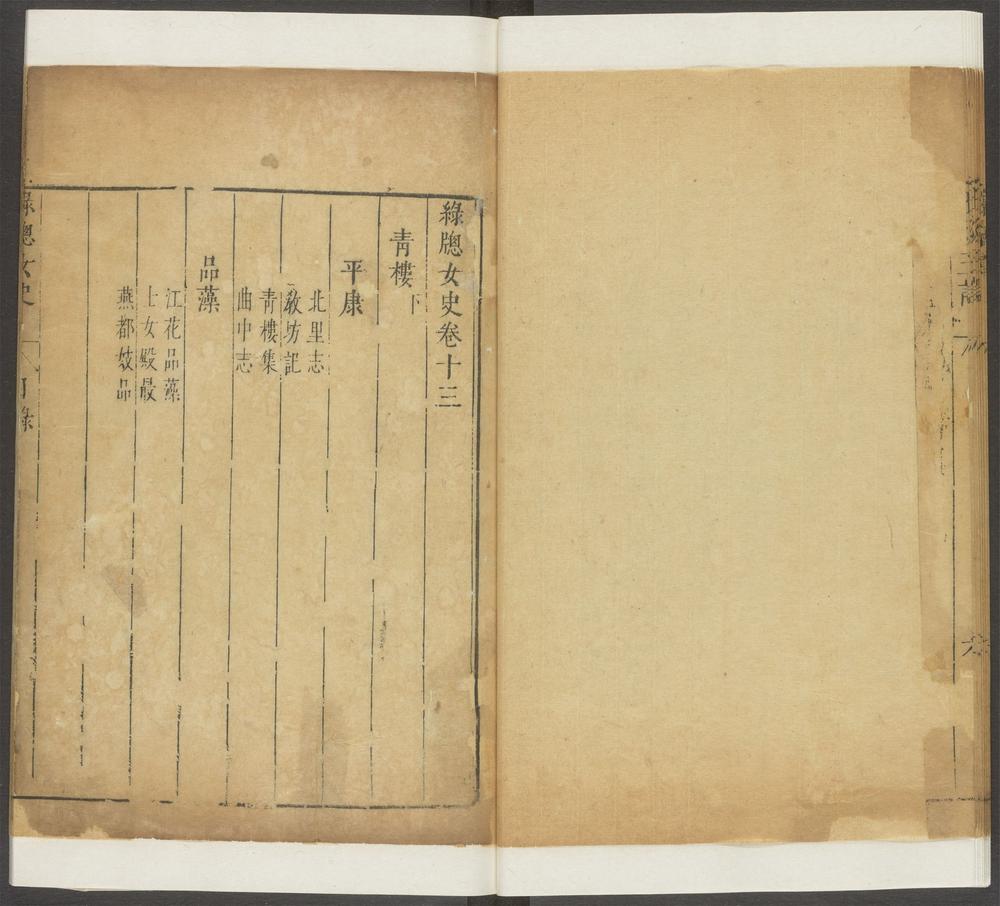 綠牕女史卷十三
青樓下
平康
北里志
敎坊記
青樓集
曲中志
品藻
江花品藻
士女殿最
燕都妓品
綠牕女史
目錄